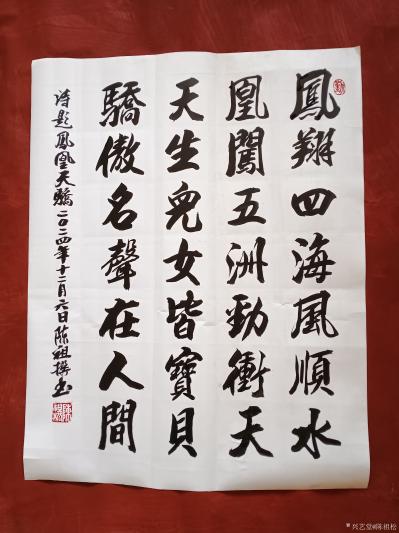 鳳翔四海風順水
凰闖五洲勁衝天
天生兒女皆寶貝
驕傲名聲在人間
诗题鳳凰天驕二〇二四年十二月六日陈祖撰书
兴艺堂#陈祖松